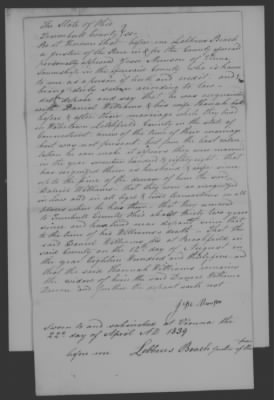 The State of Ohio
Trumbull County SS
Be it known that before me Lebbeus Beach
a Justice of the Peace in & for the County aforesaid
personally appeared Jesse Munson of Vienna
Township in the aforesaid County who is known
to me as a person of truth and credit and
being duly sworn according to law
doth depose and say that he was acquainted
with Daniel Williams & his wife Hannah both
before & after their marriage which they had
in Litchfield County in the State of
Connecticut some of the time of their marriage
but was not present but from the best infor
mation he can make it appears they were married
in the year seventeen hundred & eighty eight that
he has recognized them as husband & wife ever
since the time of the marriage of him the said
Daniel Williams that they were so recognized
in law and in all
places where he that they removed
to Trumbull County Ohio about thirty two years
since and have lived near deponent until
the time of his Williams's death That the
said Daniel Williams died at Brookfield in
said County on the 22nd day of August in
the year Eighteen Hundred and thirty five and
that the said Hannah Williams remains
the widow of him the said Daniel Williams
and further the deponent saith not
Jesse Munson
Sworn to and subscribed at Vienna the
22nd day of April AD 1839
before me Lebbeus Beach Justice of the Peace